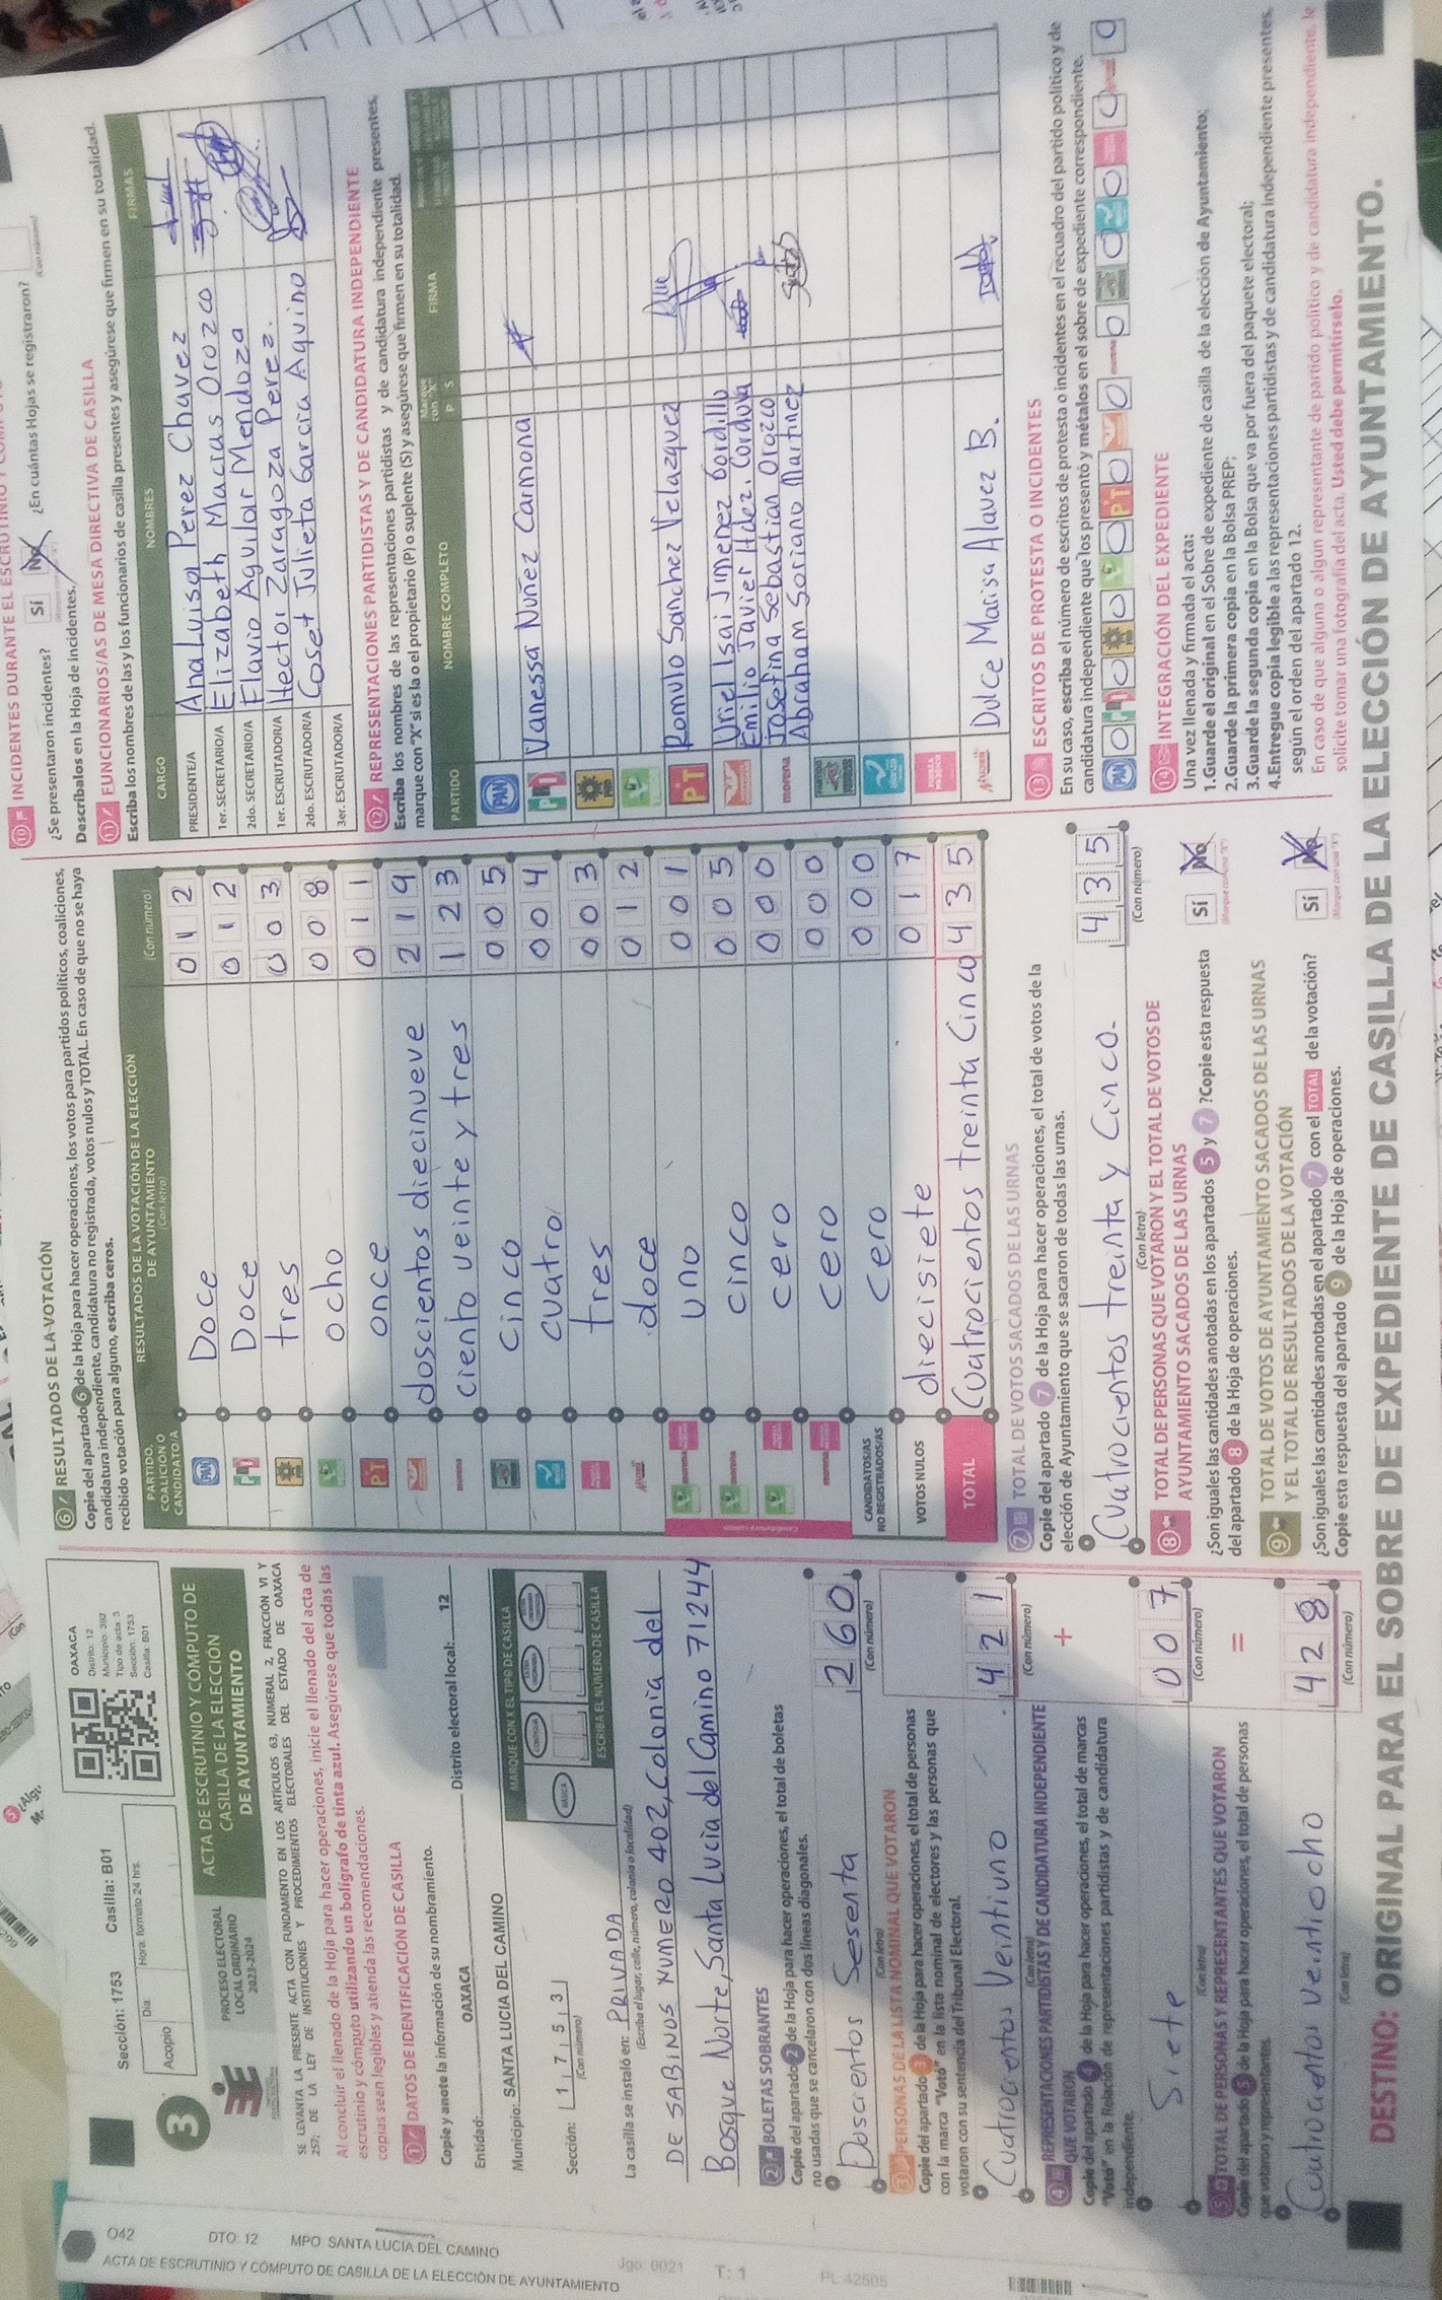 042
DTO: 12
MPO SANTA LUCIA DEL CAMINO
ACTA DE ESCRUTINIO Y CÓMPUTO DE CASILLA DE LA ELECCIÓN DE AYUNTAMIENTO
Sección: 1753
Casilla: B01
Acopio
Día
Hora: formato 24 hrs.
OAXACA
Distrito: 12
Tipo de acta: 3
Sección: 1753
Casilla: B01
3
PROCESO ELECTORAL
LOCAL ORDINARIO
2023-2024
ACTA DE ESCRUTINIO Y CÓMPUTO DE
CASILLA DE LA ELECCIÓN
DE AYUNTAMIENTO
SE LEVANTA LA PRESENTE ACTA CON FUNDAMENTO EN LOS ARTÍCULOS 63, NUMERAL 2, FRACCIÓN VI Y
257; DE LA LEY DE INSTITUCIONES Y PROCEDIMIENTOS ELECTORALES DEL ESTADO DE OAXACA
Al concluir el llenado de la Hoja para hacer operaciones, inicie el llenado del acta de
escrutinio y cómputo utilizando un bolígrafo de tinta azul. Asegúrese que todas las
copias sean legibles y atienda las recomendaciones.
1 DATOS DE IDENTIFICACIÓN DE CASILLA
Copie y anote la información de su nombramiento.
Entidad: OAXACA Distrito electoral local: 12
Municipio: SANTA LUCIA DEL CAMINO
MARQUE CON X EL TIPO DE CASILLA
Sección: 1 7 5 3
(Con número)
ESCRIBA EL NÚMERO DE CASILLA
La casilla se instaló en: PRIVADA
(Escriba el lugar, calle, número, colonia o localidad)
DE SABINOS NUMERO 402, Colonia del
Bosque Norte, Santa Lucia del Camino 71244
2 BOLETAS SOBRANTES
Copie del apartado 2 de la Hoja para hacer operaciones, el total de boletas
no usadas que se cancelaron con dos líneas diagonales.
Doscientos Sesenta 260
(Con letra) (Con número)
3 PERSONAS DE LA LISTA NOMINAL QUE VOTARON
Copie del apartado 3 de la Hoja para hacer operaciones, el total de personas
con la marca "Votó" en la lista nominal de electores y las personas que
votaron con su sentencia del Tribunal Electoral.
Cuatrocientos Veintiuno 421
(Con letra) (Con número)
4 REPRESENTACIONES PARTIDISTAS Y DE CANDIDATURA INDEPENDIENTE
QUE VOTARON
+
Copie del apartado 4 de la Hoja para hacer operaciones, el total de marcas
"Votó" en la Relación de representaciones partidistas y de candidatura
independiente.
Siete 007
(Con letra) (Con número)
5 TOTAL DE PERSONAS Y REPRESENTANTES QUE VOTARON
=
Copie del apartado 5 de la Hoja para hacer operaciones, el total de personas
que votaron y representantes.
Cuatrocientos veintiocho 428
(Con letra) (Con número)
6 RESULTADOS DE LA VOTACIÓN
Copie del apartado 6 de la Hoja para hacer operaciones, los votos para partidos políticos, coaliciones,
candidatura independiente, candidatura no registrada, votos nulos y TOTAL. En caso de que no se haya
recibido votación para alguno, escriba ceros.
PARTIDO, COALICIÓN O CANDIDATO/A
RESULTADOS DE LA VOTACIÓN DE LA ELECCIÓN DE AYUNTAMIENTO
(Con letra) (Con número)
PAN Doce 012
PRI Doce 012
tres 003
ocho 008
PT once 011
doscientos diecinueve 219
morena ciento veinte y tres 123
cinco 005
cuatro 004
tres 003
doce 012
uno 001
cinco 005
cero 000
cero 000
CANDIDATOS/AS NO REGISTRADOS/AS cero 000
VOTOS NULOS diecisiete 017
TOTAL Cuatrocientos treinta Cinco 435
7 TOTAL DE VOTOS SACADOS DE LAS URNAS
Copie del apartado 7 de la Hoja para hacer operaciones, el total de votos de la
elección de Ayuntamiento que se sacaron de todas las urnas.
Cuatrocientos treinta y Cinco. 435
(Con letra) (Con número)
8 TOTAL DE PERSONAS QUE VOTARON Y EL TOTAL DE VOTOS DE
AYUNTAMIENTO SACADOS DE LAS URNAS
¿Son iguales las cantidades anotadas en los apartados 5 y 7 ? Copie esta respuesta
del apartado 8 de la Hoja de operaciones.
Sí No
9 TOTAL DE VOTOS DE AYUNTAMIENTO SACADOS DE LAS URNAS
Y EL TOTAL DE RESULTADOS DE LA VOTACIÓN
¿Son iguales las cantidades anotadas en el apartado 7 con el TOTAL de la votación?
Copie esta respuesta del apartado 9 de la Hoja de operaciones.
Sí No
10 INCIDENTES DURANTE EL ESCRUTINIO Y
¿Se presentaron incidentes? Sí No ¿En cuántas Hojas se registraron?
Descríbalos en la Hoja de incidentes.
11 FUNCIONARIOS/AS DE MESA DIRECTIVA DE CASILLA
Escriba los nombres de las y los funcionarios de casilla presentes y asegúrese que firmen en su totalidad.
CARGO NOMBRES FIRMAS
PRESIDENTE/A Ana Luisa Perez Chavez
1er. SECRETARIO/A Elizabeth Macias Orozco
2do. SECRETARIO/A Flavio Aguilar Mendoza
1er. ESCRUTADOR/A Hector Zaragoza Perez.
2do. ESCRUTADOR/A Coset Julieta Garcia Aquino
3er. ESCRUTADOR/A
12 REPRESENTACIONES PARTIDISTAS Y DE CANDIDATURA INDEPENDIENTE
Escriba los nombres de las representaciones partidistas y de candidatura independiente presentes,
marque con "X" si es la o el propietario (P) o suplente (S) y asegúrese que firmen en su totalidad.
PARTIDO NOMBRE COMPLETO Marque con "X" P S FIRMA
PAN
PRI Vanessa Nuñez Carmona
PT Romulo Sanchez Velazquez
Uriel Isai Jimenez Gordillo
Emilio Javier Hdez. Cordova
morena Josefina Sebastian Orozco
Abraham Soriano Martinez
Dulce Marisa Alavez B.
13 ESCRITOS DE PROTESTA O INCIDENTES
En su caso, escriba el número de escritos de protesta o incidentes en el recuadro del partido político y de
candidatura independiente que los presentó y métalos en el sobre de expediente correspondiente.
PAN 0 PRI 0 0 0 PT 0 0 0 0 0 0 0
14 INTEGRACIÓN DEL EXPEDIENTE
Una vez llenada y firmada el acta:
1.Guarde el original en el Sobre de expediente de casilla de la elección de Ayuntamiento;
2.Guarde la primera copia en la Bolsa PREP;
3.Guarde la segunda copia en la Bolsa que va por fuera del paquete electoral;
4.Entregue copia legible a las representaciones partidistas y de candidatura independiente presentes,
según el orden del apartado 12.
En caso de que alguna o algun representante de partido político y de candidatura independiente, le
solicite tomar una fotografía del acta, Usted debe permitírselo.
DESTINO: ORIGINAL PARA EL SOBRE DE EXPEDIENTE DE CASILLA DE LA ELECCIÓN DE AYUNTAMIENTO.